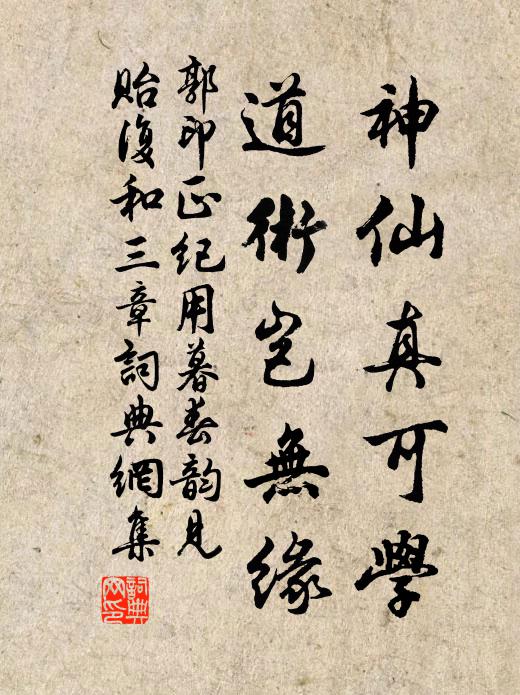 神仙真可學
道術豈無緣
郭印正紀用暮春韵見
貽復和三章詞典網集
詞典网印